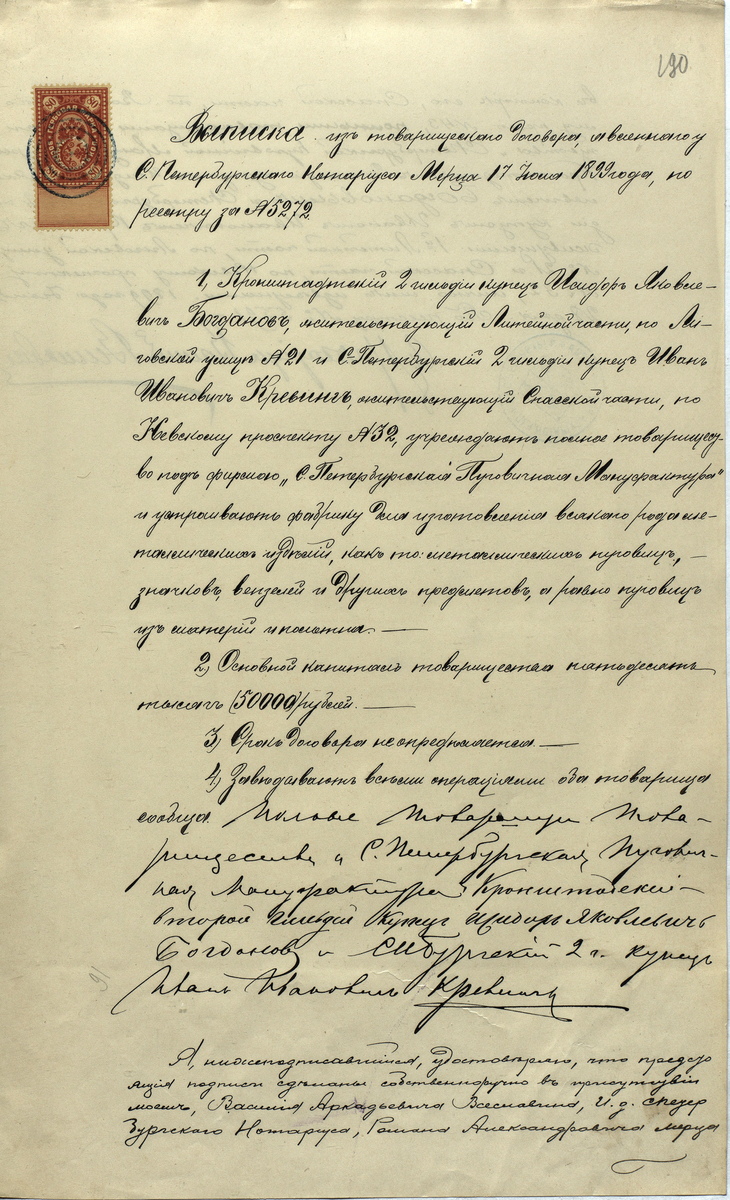 190
Выписка изъ товарищескаго договора, явленнаго у
С. Петербургскаго Нотаріуса Мерца 17 Іюля 1899 года, по
реестру за № 5272.
1, Кронштадтскій 2 гильдіи купецъ Исидоръ Яковле-
вичъ Богдановъ, жительствующій Литейной части, по Ли-
говской улицѣ № 21 и С.-Петербургскій 2 гильдіи купецъ Иванъ
Ивановичъ Кревингъ, жительствующій Спасской части, по
Невскому проспекту № 32, учреждаютъ полное товарищест-
во подъ фирмою „С. Петербургская Пуговичная Мануфактура"
и устраиваютъ фабрику для изготовленія всякаго рода ме-
таллическихъ издѣлій, какъ то: металлическихъ пуговицъ, —
значковъ, вензелей и другихъ предметовъ, а равно пуговицъ
изъ матерій и полотна. —
2) Основной капиталъ товарищества пятьдесятъ
тысячъ (50000) рублей. —
3) Срокъ договора неопредѣляется. —
4) Завѣдываютъ всѣми операціями оба товарища
сообща. Полные Товарищи Това-
рищества „С. Петербургская Пугович-
ная Мануфактура" Кронштадскій
второй гильдіи купецъ Исидоръ Яковлевичъ
Богдановъ и СПБургскій 2 г. купецъ
Иванъ Ивановичъ Кревингъ
Я, нижеподписавшійся, удостовѣряю, что предсто
ящія подписи сдѣланы собственноручно въ присутствіи
моемъ, Василія Аркадьевича И. д. СПетер
бургскаго Нотаріуса, Романа Александровича Мерца